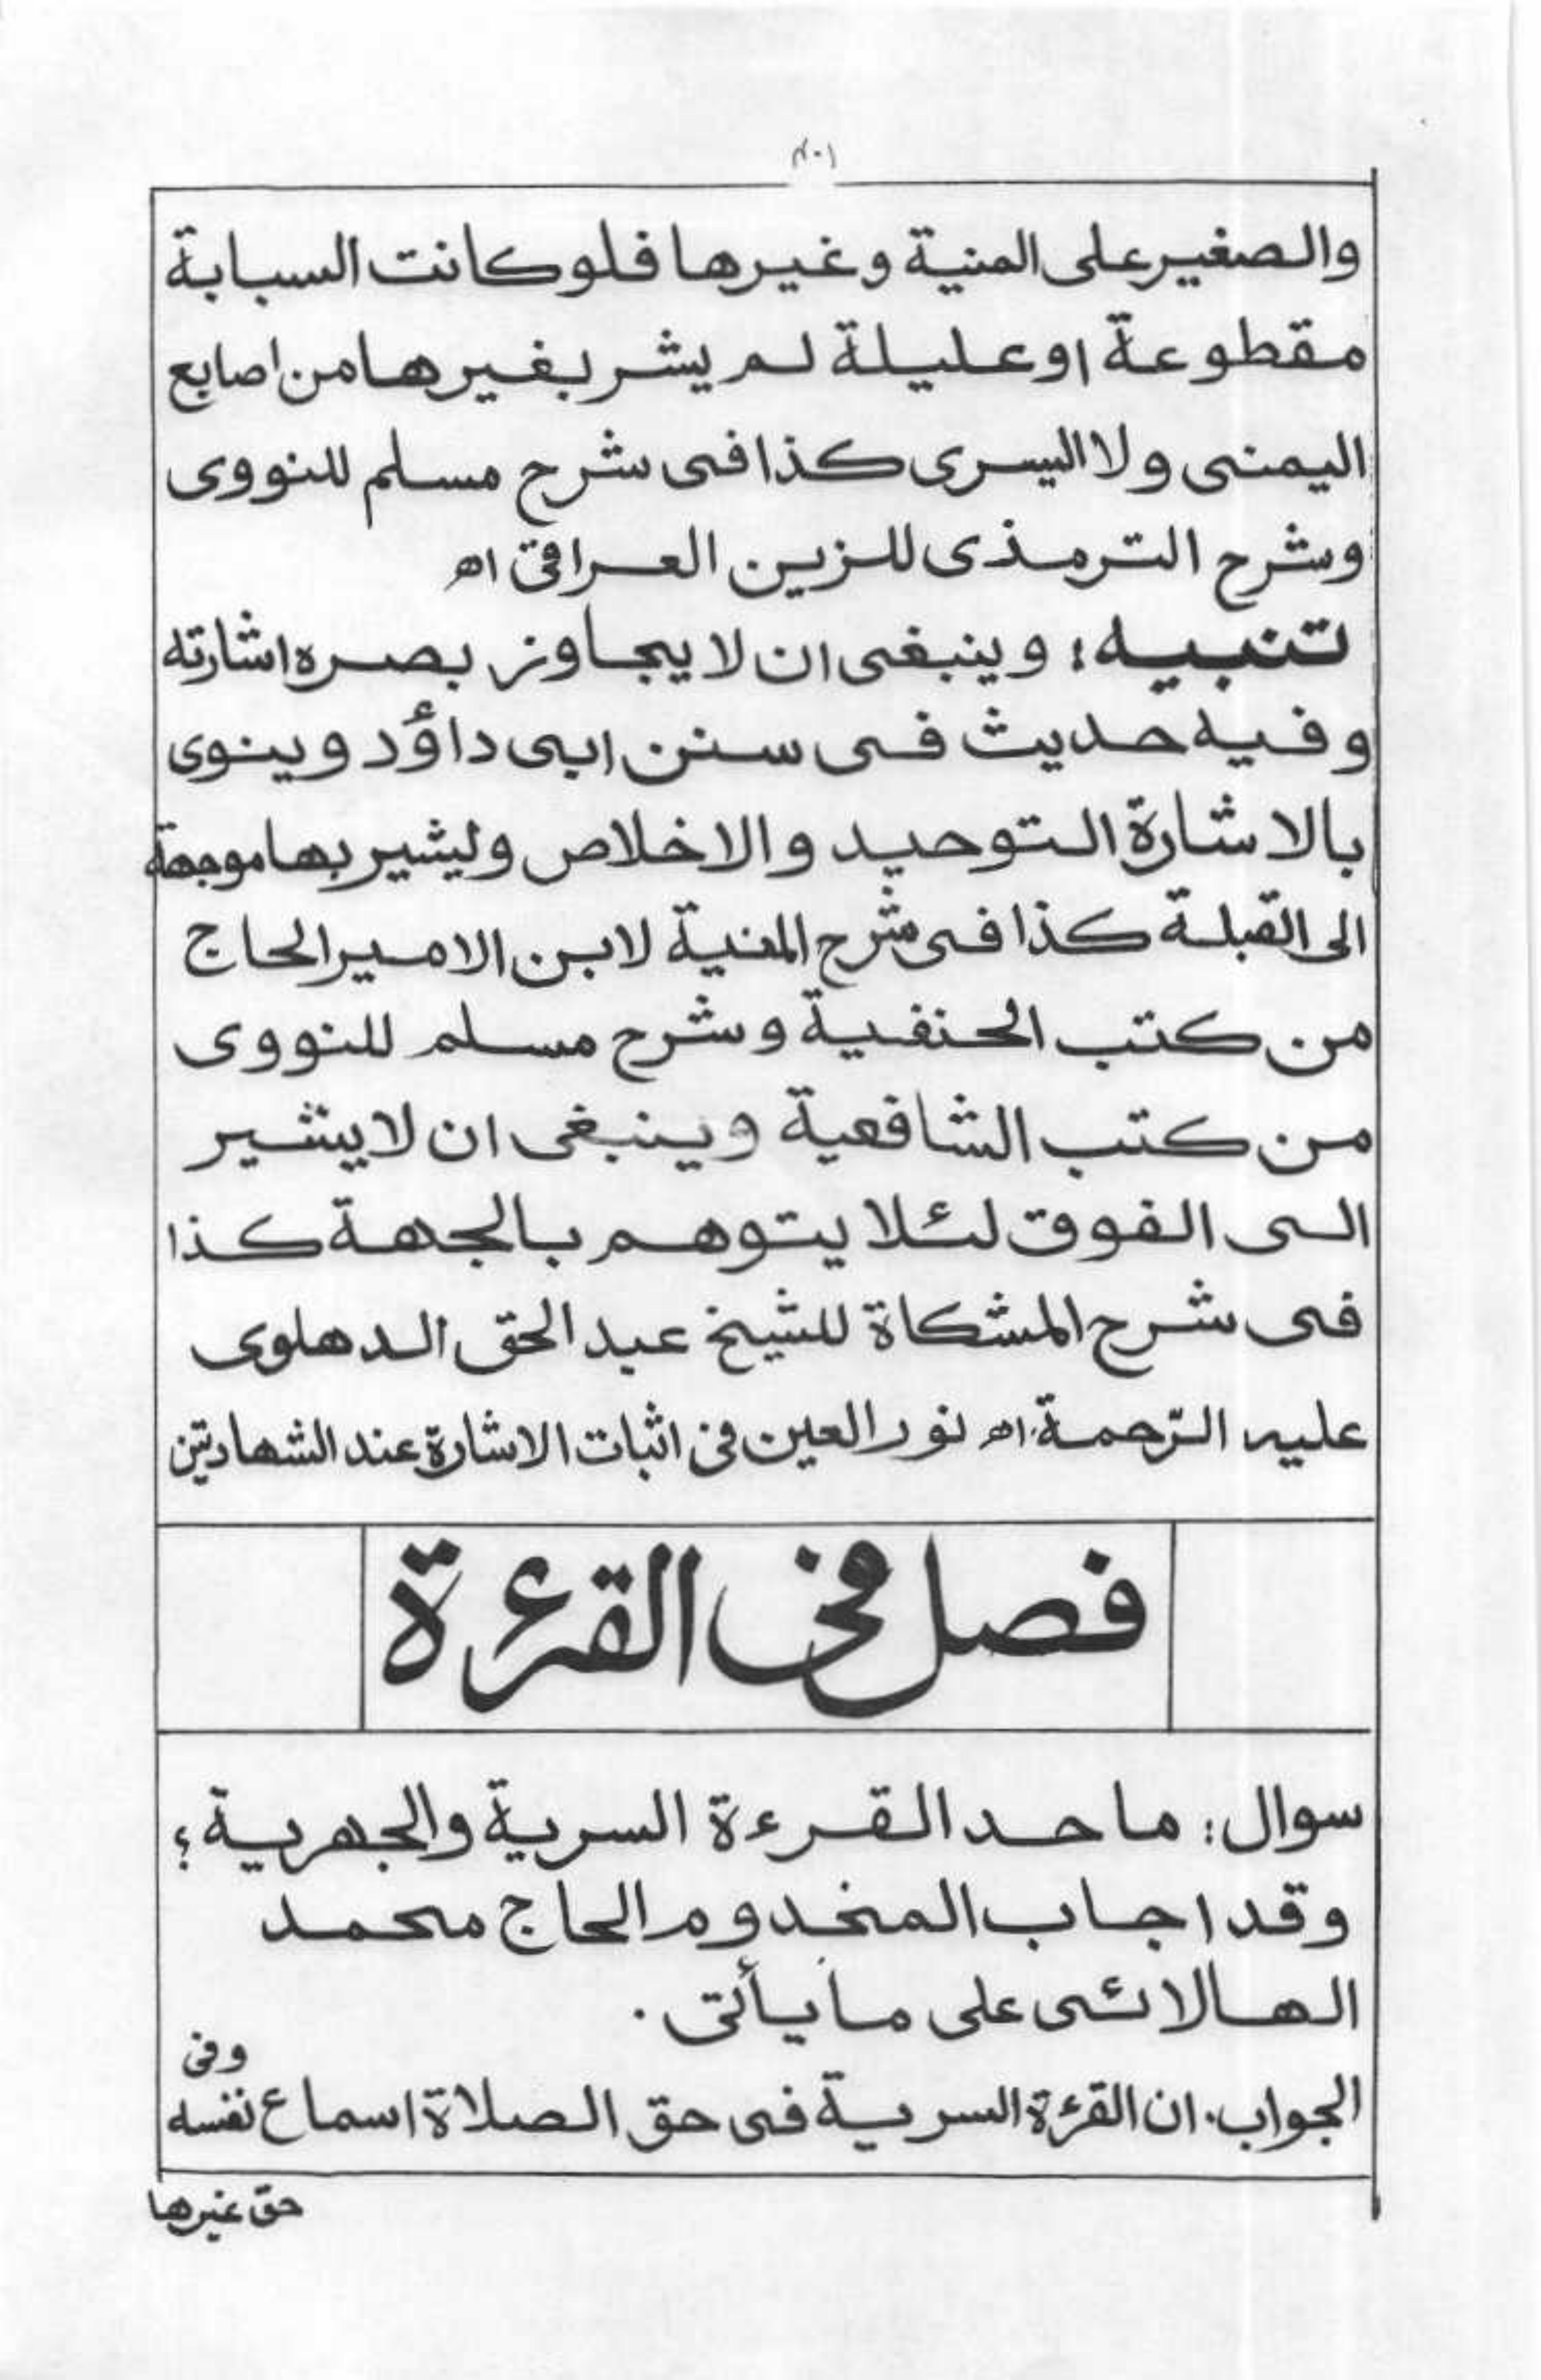 والصغير على المنية وغيرها فلوكانت السبابة
مقطوعة اوعليلة لم يشر بغيرها من اصابع
اليمنى ولا اليسرى كذا فى شرح مسلم للنووى
وشرح الترمذى للزين العراقى اھ
تنبيه: وينبغى ان لا يجاوز بصره اشارته
وفيه حديث فى سنن ابى داؤد وينوى
بالاشارة التوحيد والاخلاص وليشير بها موجهة
الى القبلة كذا فى شرح المنية لابن الامير الحاج
من كتب الحنفية وشرح مسلم للنووى
من كتب الشافعية وينبغى ان لا يشير
الى الفوق لئلا يتوهم بالجهة كذا
فى شرح المشكاة للشيخ عبد الحق الدهلوى
عليه الرّحمة. اھ نور العين فى اثبات الاشارة عند الشهادتين
فصل فى القرءة
سوال: ما حد القرءة السرية والجهرية؟
وقد اجاب المخدوم الحاج محمد
الهالائى على ما يأتى.
الجواب. ان القرءة السرية فى حق الصلاة اسماع نفسه
وفى
حق غيرها